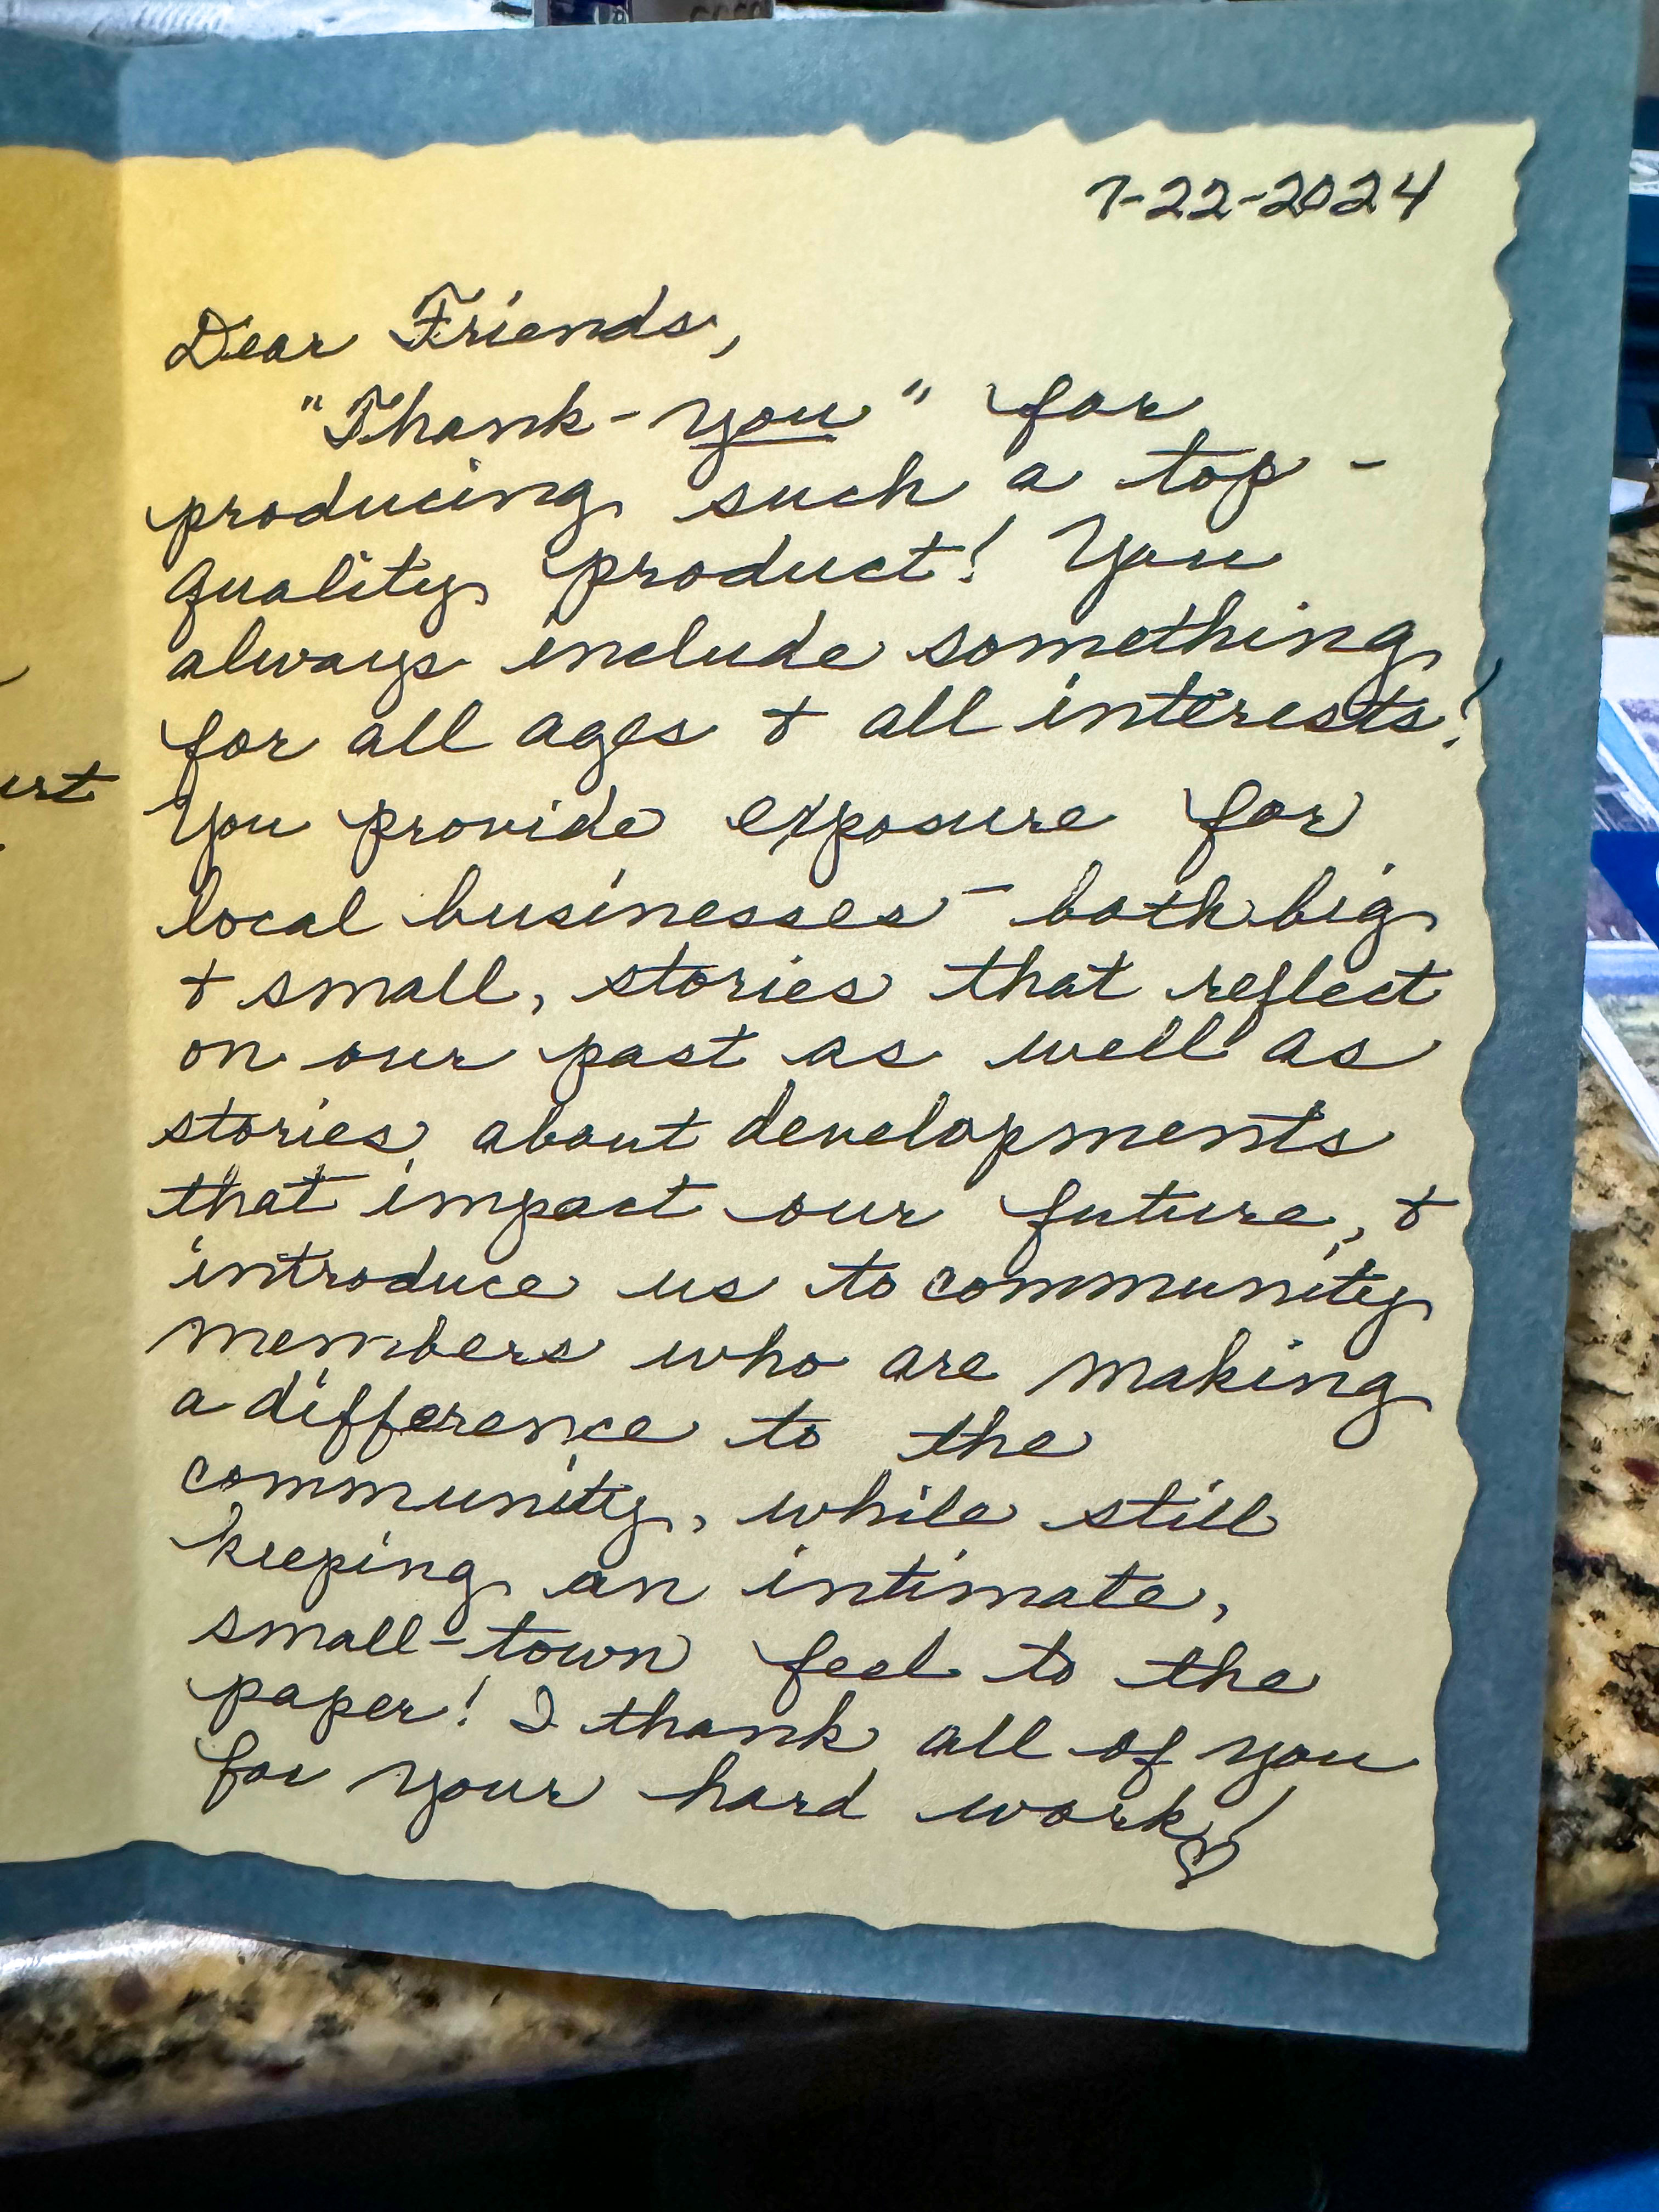 7-22-2024
Dear Friends,
"Thank-you" for
producing such a top-
quality product! You
always include something
for all ages & all interests!
You provide exposure for
local businesses - both big
& small, stories that reflect
on our past as well as
stories about developments
that impact our future, &
introduce us to community
members who are making
a difference to the
community, while still
keeping an intimate,
small-town feel to the
paper! I thank all of you
for your hard work!